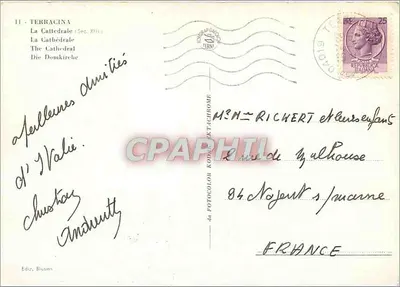 11 - TERRACINA
La Cattedrale (Sec. XII)
La Cathédrale
The Cathedral
Die Domkirche
25
04019 TE
Meilleures amitiés
d'Italie.
CPARHTI
Mr Mme RICHERT et leurs enfants
2 rue de Mulhouse
84 Nogent s/marne
FRANCE
da FOTOCOLOR KODAK EKTACHROME